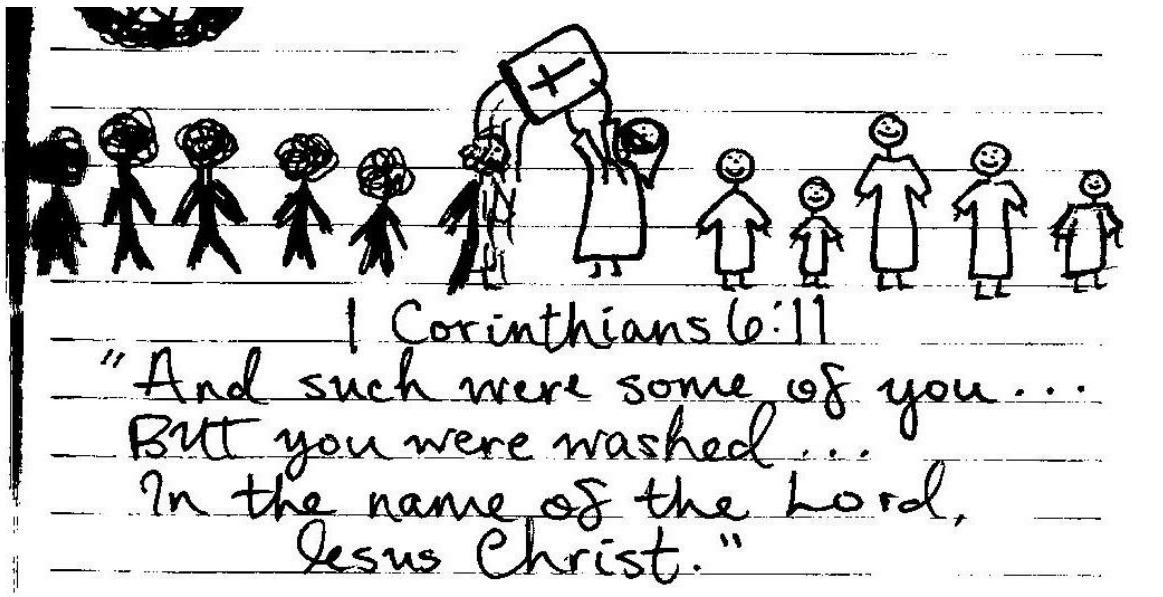 1 Corinthians 6:11
"And such were some of you...
BUT you were washed...
In the name of the Lord,
Jesus Christ."